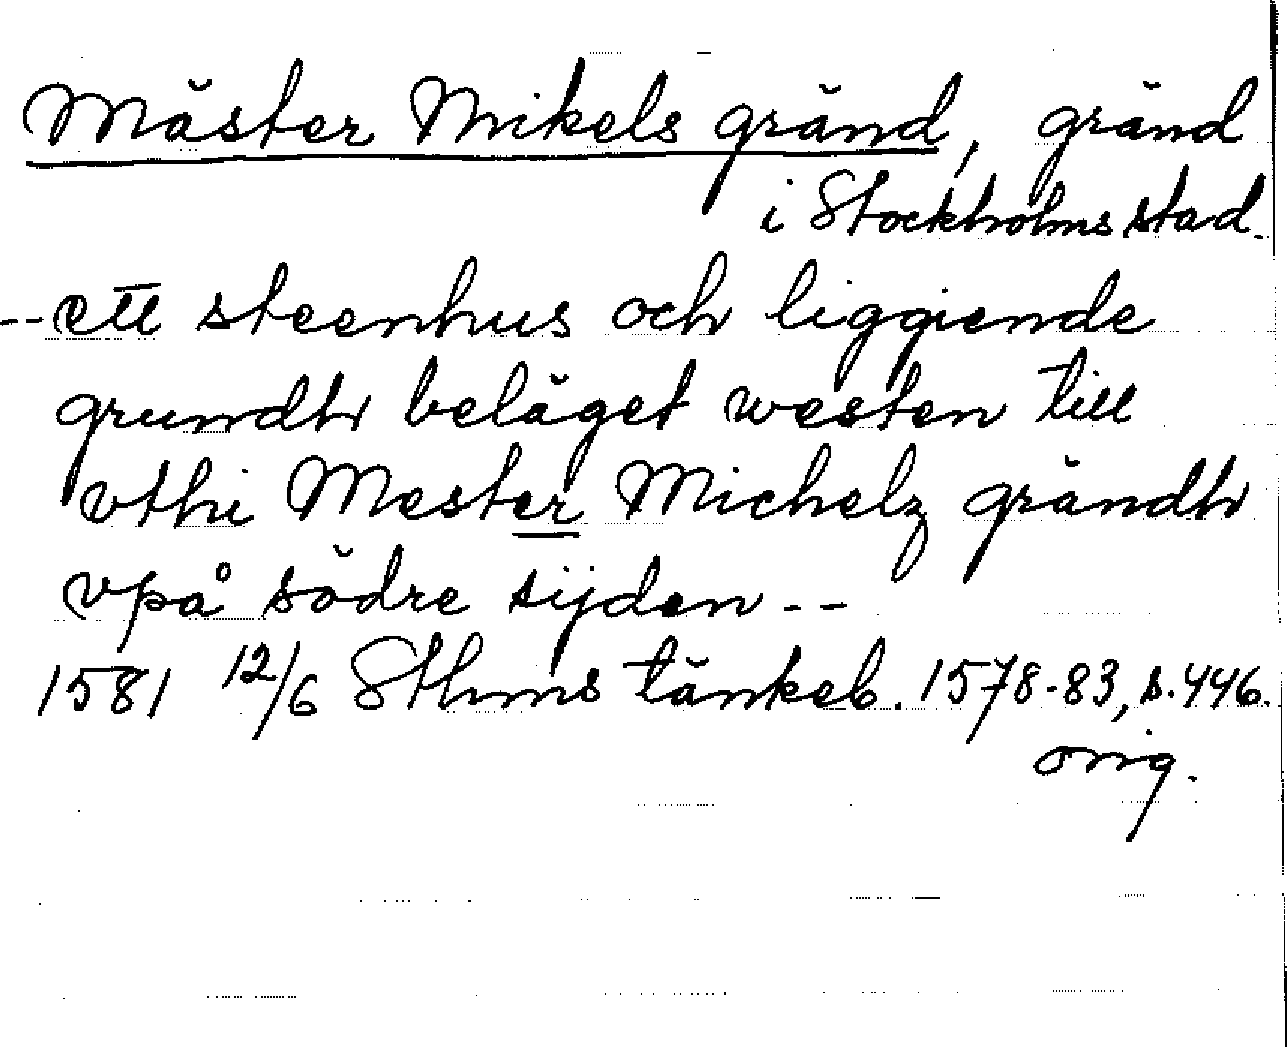 Mäster Mikels gränd, gränd
i Stockholms stad.
--ett steenhus och liggiende
grundh beläget westen till
vthi Mester Michelz grändh
vpå södre sijden--
1581 12/6 Sthms tänkeb. 1578-83, s. 446.
orig.